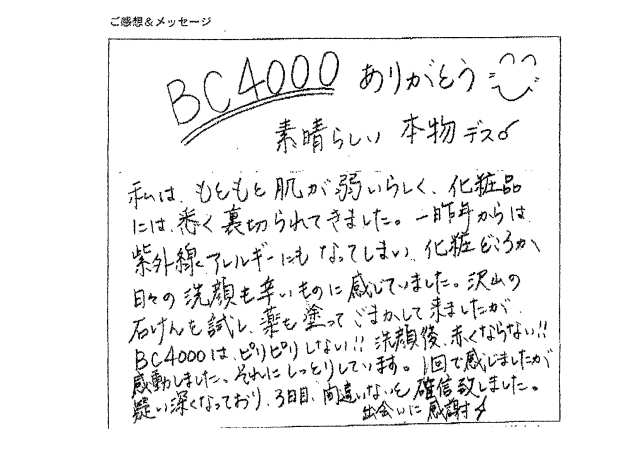 ご感想&メッセージ
BC4000 ありがとう
素晴らしい 本物デス。
私は、もともと肌が弱いらしく、化粧品
には、悉く裏切られてきました。一昨年からは
紫外線アレルギーにもなってしまい、化粧どころか、
日々の洗顔も辛いものに感じていました。沢山の
石けんを試し、薬も塗ってごまかして来ましたが、
BC4000は、ピリピリしない!! 洗顔後、赤くならない!!
感動しました。それにしっとりしています。1回で感じましたが
疑い深くなっており、3日目、間違いないと確信致しました。
出会いに感謝